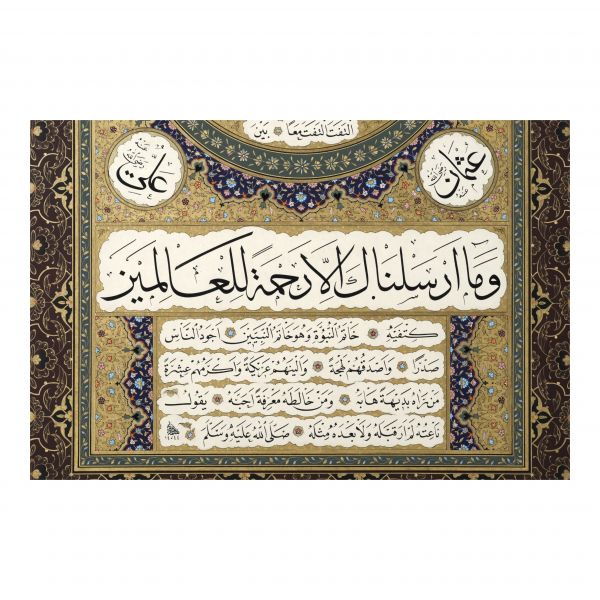 التفت التفت معا بين
عثمان رضي الله عنه
علي رضي الله عنه
وما ارسلناك الا رحمة للعالمين
كتفيه خاتم النبوة وهو خاتم النبيين اجود الناس
صدرا واصدقهم لهجة والينهم عريكة واكرمهم عشرة
من راه بديهة هابه ومن خالطه معرفة احبه يقول
ناعته لم ار قبله ولا بعده مثله صلى الله عليه وسلم